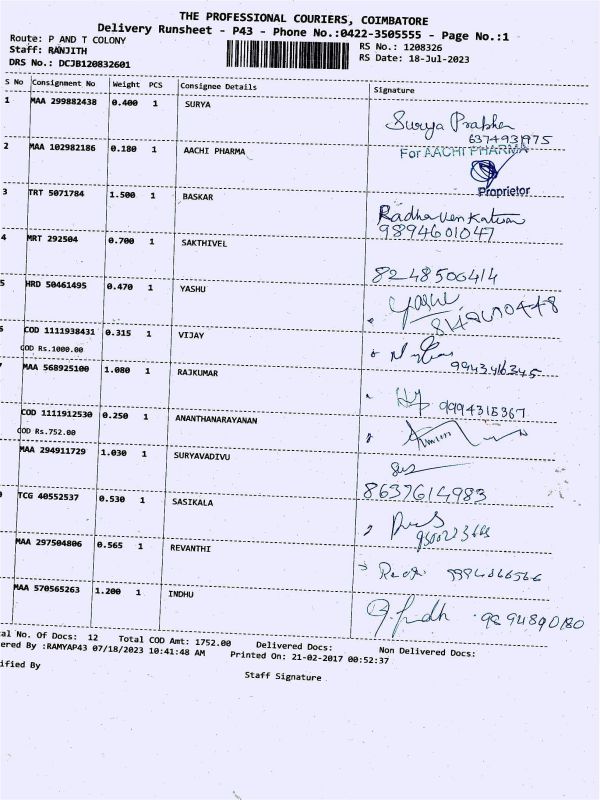 THE PROFESSIONAL COURIERS, COIMBATORE
Delivery Runsheet - P43 - Phone No.:0422-3505555 - Page No.:1
Route: P AND T COLONY
Staff: RANJITH RS No.: 1208326
DRS No.: DCJB120832601 RS Date: 18-Jul-2023
S No Consignment No Weight PCS Consignee Details Signature
1 MAA 299882438 0.400 1 SURYA
Surya Prabha
6374931975
2 MAA 102982186 0.180 1 AACHI PHARMA For AACHI PHARMA
Proprietor
3 TRT 5071784 1.500 1 BASKAR
Radha Venkatesan
9894601047
4 MRT 292504 0.700 1 SAKTHIVEL
8248506414
5 HRD 50461495 0.470 1 YASHU Yashu
COD 1111938431 0.315 1 VIJAY
COD Rs.1000.00
9943416345
MAA 568925100 1.080 1 RAJKUMAR
9994315367
COD 1111912530 0.250 1 ANANTHANARAYANAN
COD Rs.752.00
MAA 294911729 1.030 1 SURYAVADIVU
8637614983
TCG 40552537 0.530 1 SASIKALA
MAA 297504806 0.565 1 REVANTHI
MAA 570565263 1.200 1 INDHU
al No. Of Docs: 12 Total COD Amt: 1752.00 Delivered Docs: Non Delivered Docs:
ered By :RAMYAP43 07/18/2023 10:41:48 AM Printed On: 21-02-2017 00:52:37
ified By Staff Signature